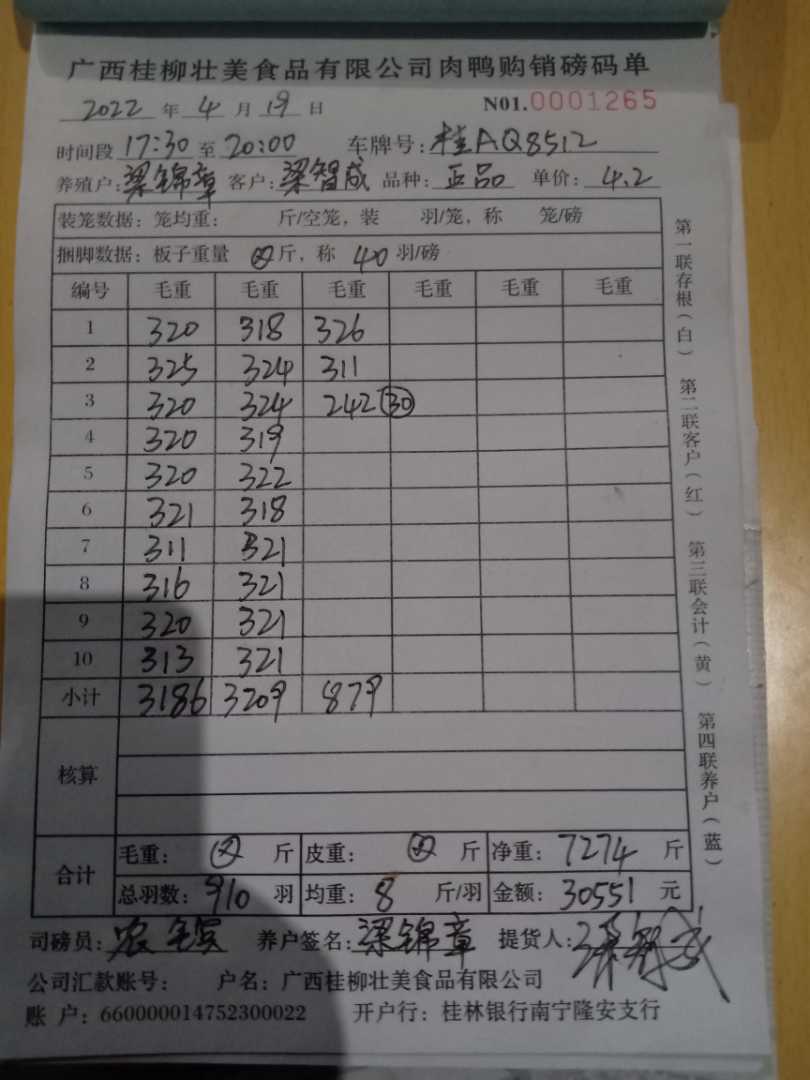 广西桂柳壮美食品有限公司肉鸭购销磅码单
2022 年 4 月 19 日 N01.0001265
时间段 17:30 至 20:00 车牌号: 桂AQ8512
养殖户: 梁锦章 客户: 梁智成 品种: 正品 单价: 4.2
装笼数据: 笼均重: 斤/空笼, 装 羽/笼, 称 笼/磅
捆脚数据: 板子重量 斤, 称 40 羽/磅
编号 毛重 毛重 毛重 毛重 毛重 毛重
1 320 318 326
2 325 324 311
3 320 324 242 30
4 320 319
5 320 322
6 321 318
7 311 321
8 316 321
9 320 321
10 313 321
小计 3186 3209 879
核算
合计 毛重: 斤 皮重: 斤 净重: 7274 斤
总羽数: 910 羽 均重: 8 斤/羽 金额: 30551 元
司磅员: 养户签名: 梁锦章 提货人: 梁智成
公司汇款账号: 户名: 广西桂柳壮美食品有限公司
账 户: 660000014752300022 开户行: 桂林银行南宁隆安支行
第一联存根(白) 第二联客户(红) 第三联会计(黄) 第四联养户(蓝)